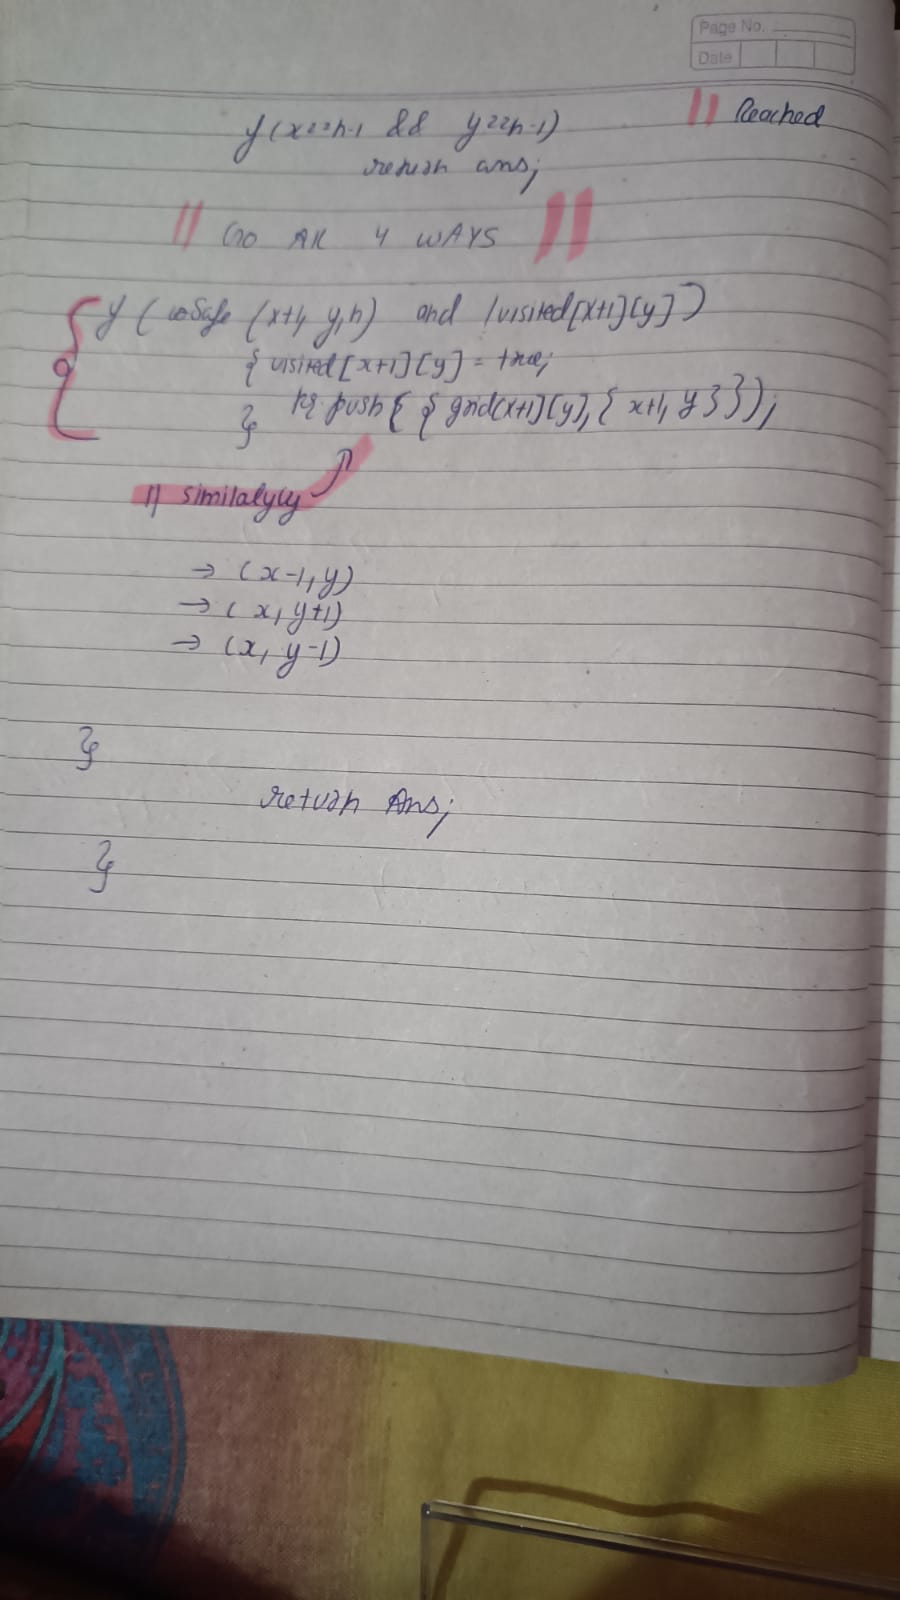 Page No.
Date
if (x==n-1 && y==n-1) // Reached
return ans;
// GO All 4 WAYS //
if (isSafe (x+1, y, n) and !visited[x+1][y])
{ visited[x+1][y] = true;
pq.push({ grid[x+1][y], { x+1, y }});
}
// similalyly
→ (x-1, y)
→ (x, y+1)
→ (x, y-1)
}
return Ans;
}